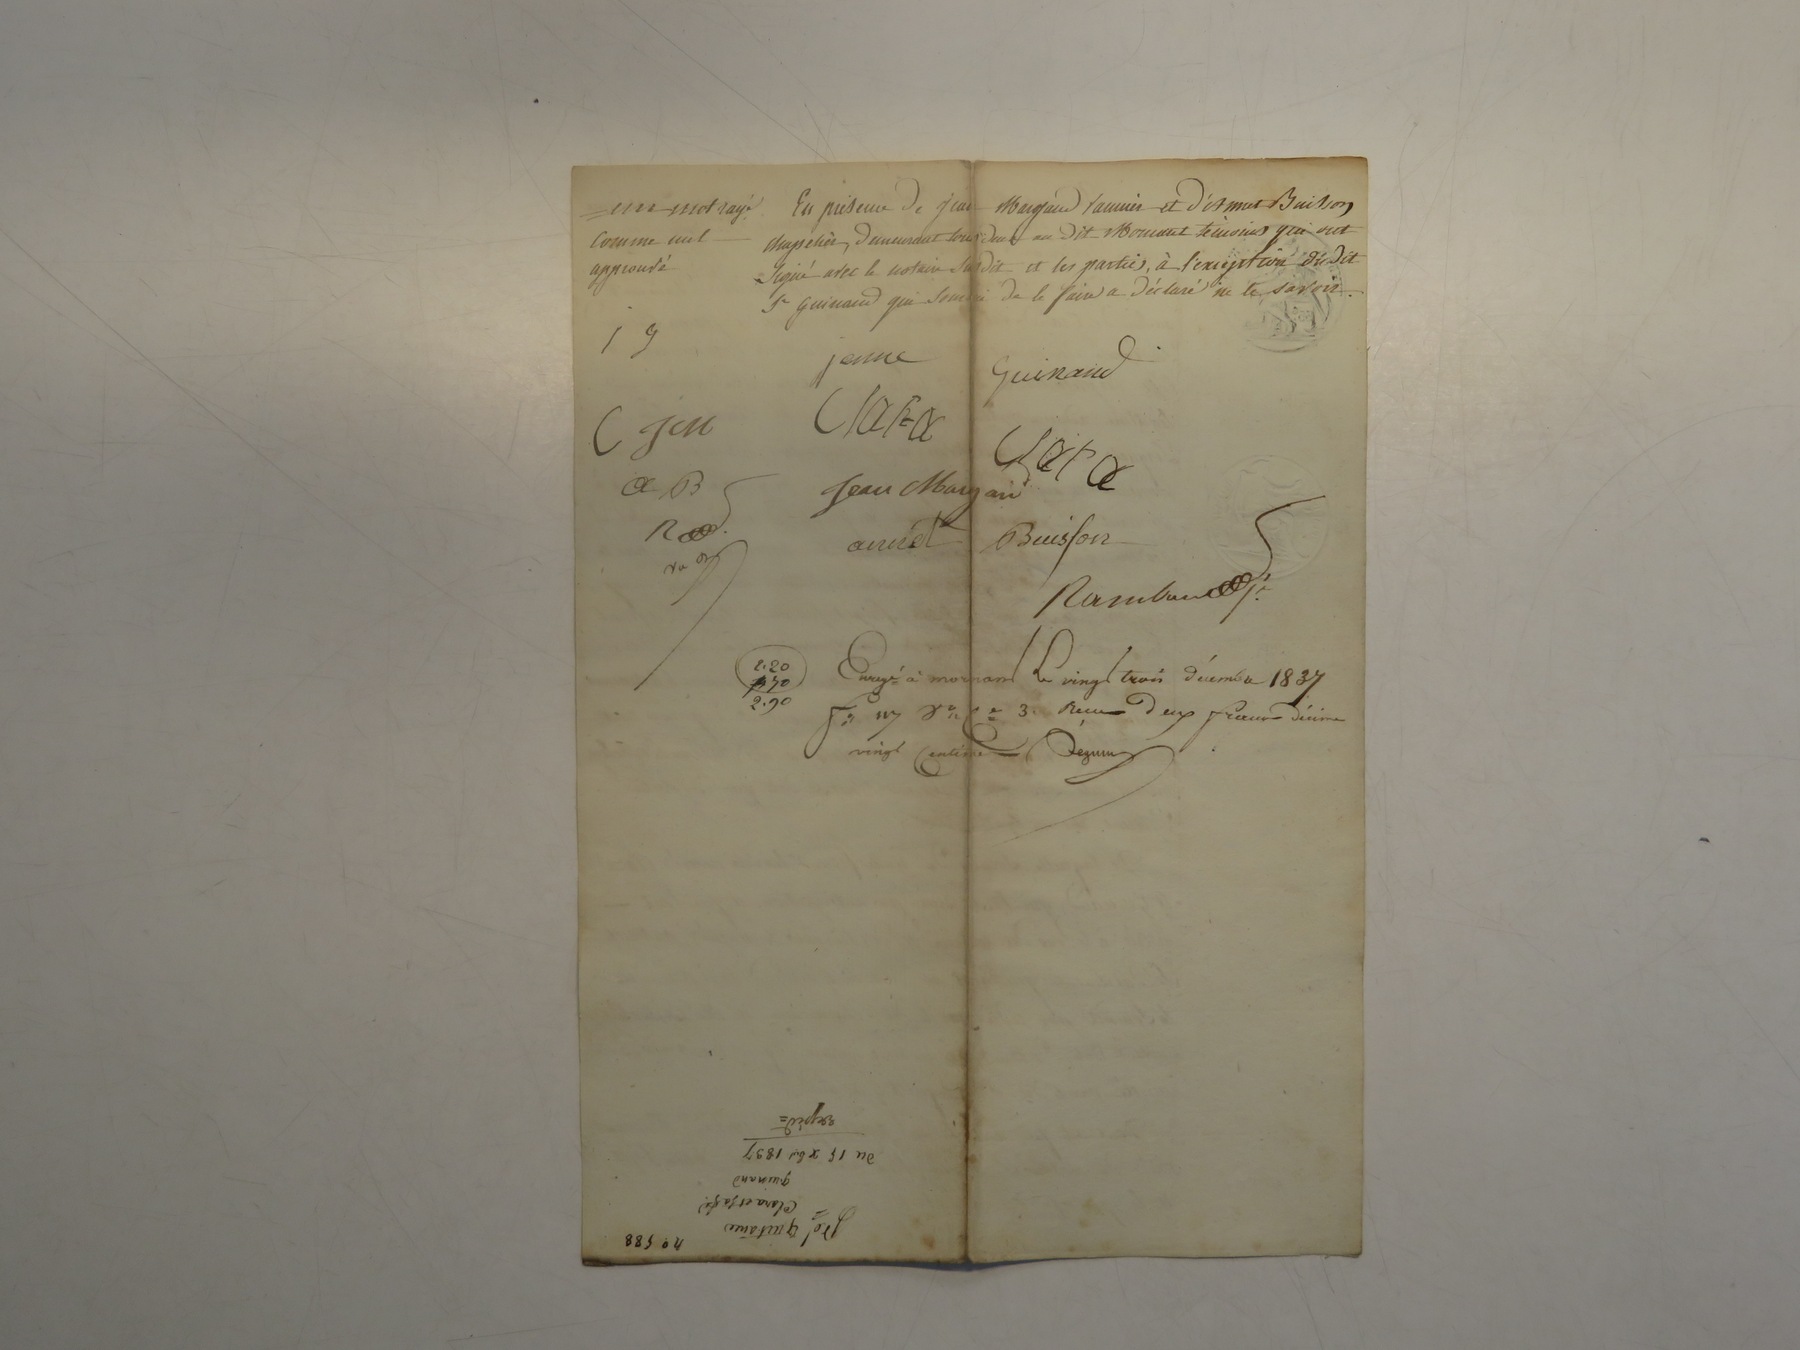 un mot rayé
comme nul
approuvé
En présence de Jean Margand vannier et d'étmet Buisson
chapelier, demeurant tous deux au dit Mornant témoins qui ont
signé avec le notaire susdit et les parties, à l'exception dudit
Sr Guinand qui sommé de le faire a déclaré ne le savoir.
j g
jenne Guinand
C
Clara Clara
a B
Jean Margan
R
aimét Buisson
Rambaud
2.20
70
2.90
Enregé à mornant le vingt trois décembre 1837
3 Recu deux francs décime
vingt centimes
nº 588
quitance
Clara et
guinand
du 15 xbre 1837
expéd=